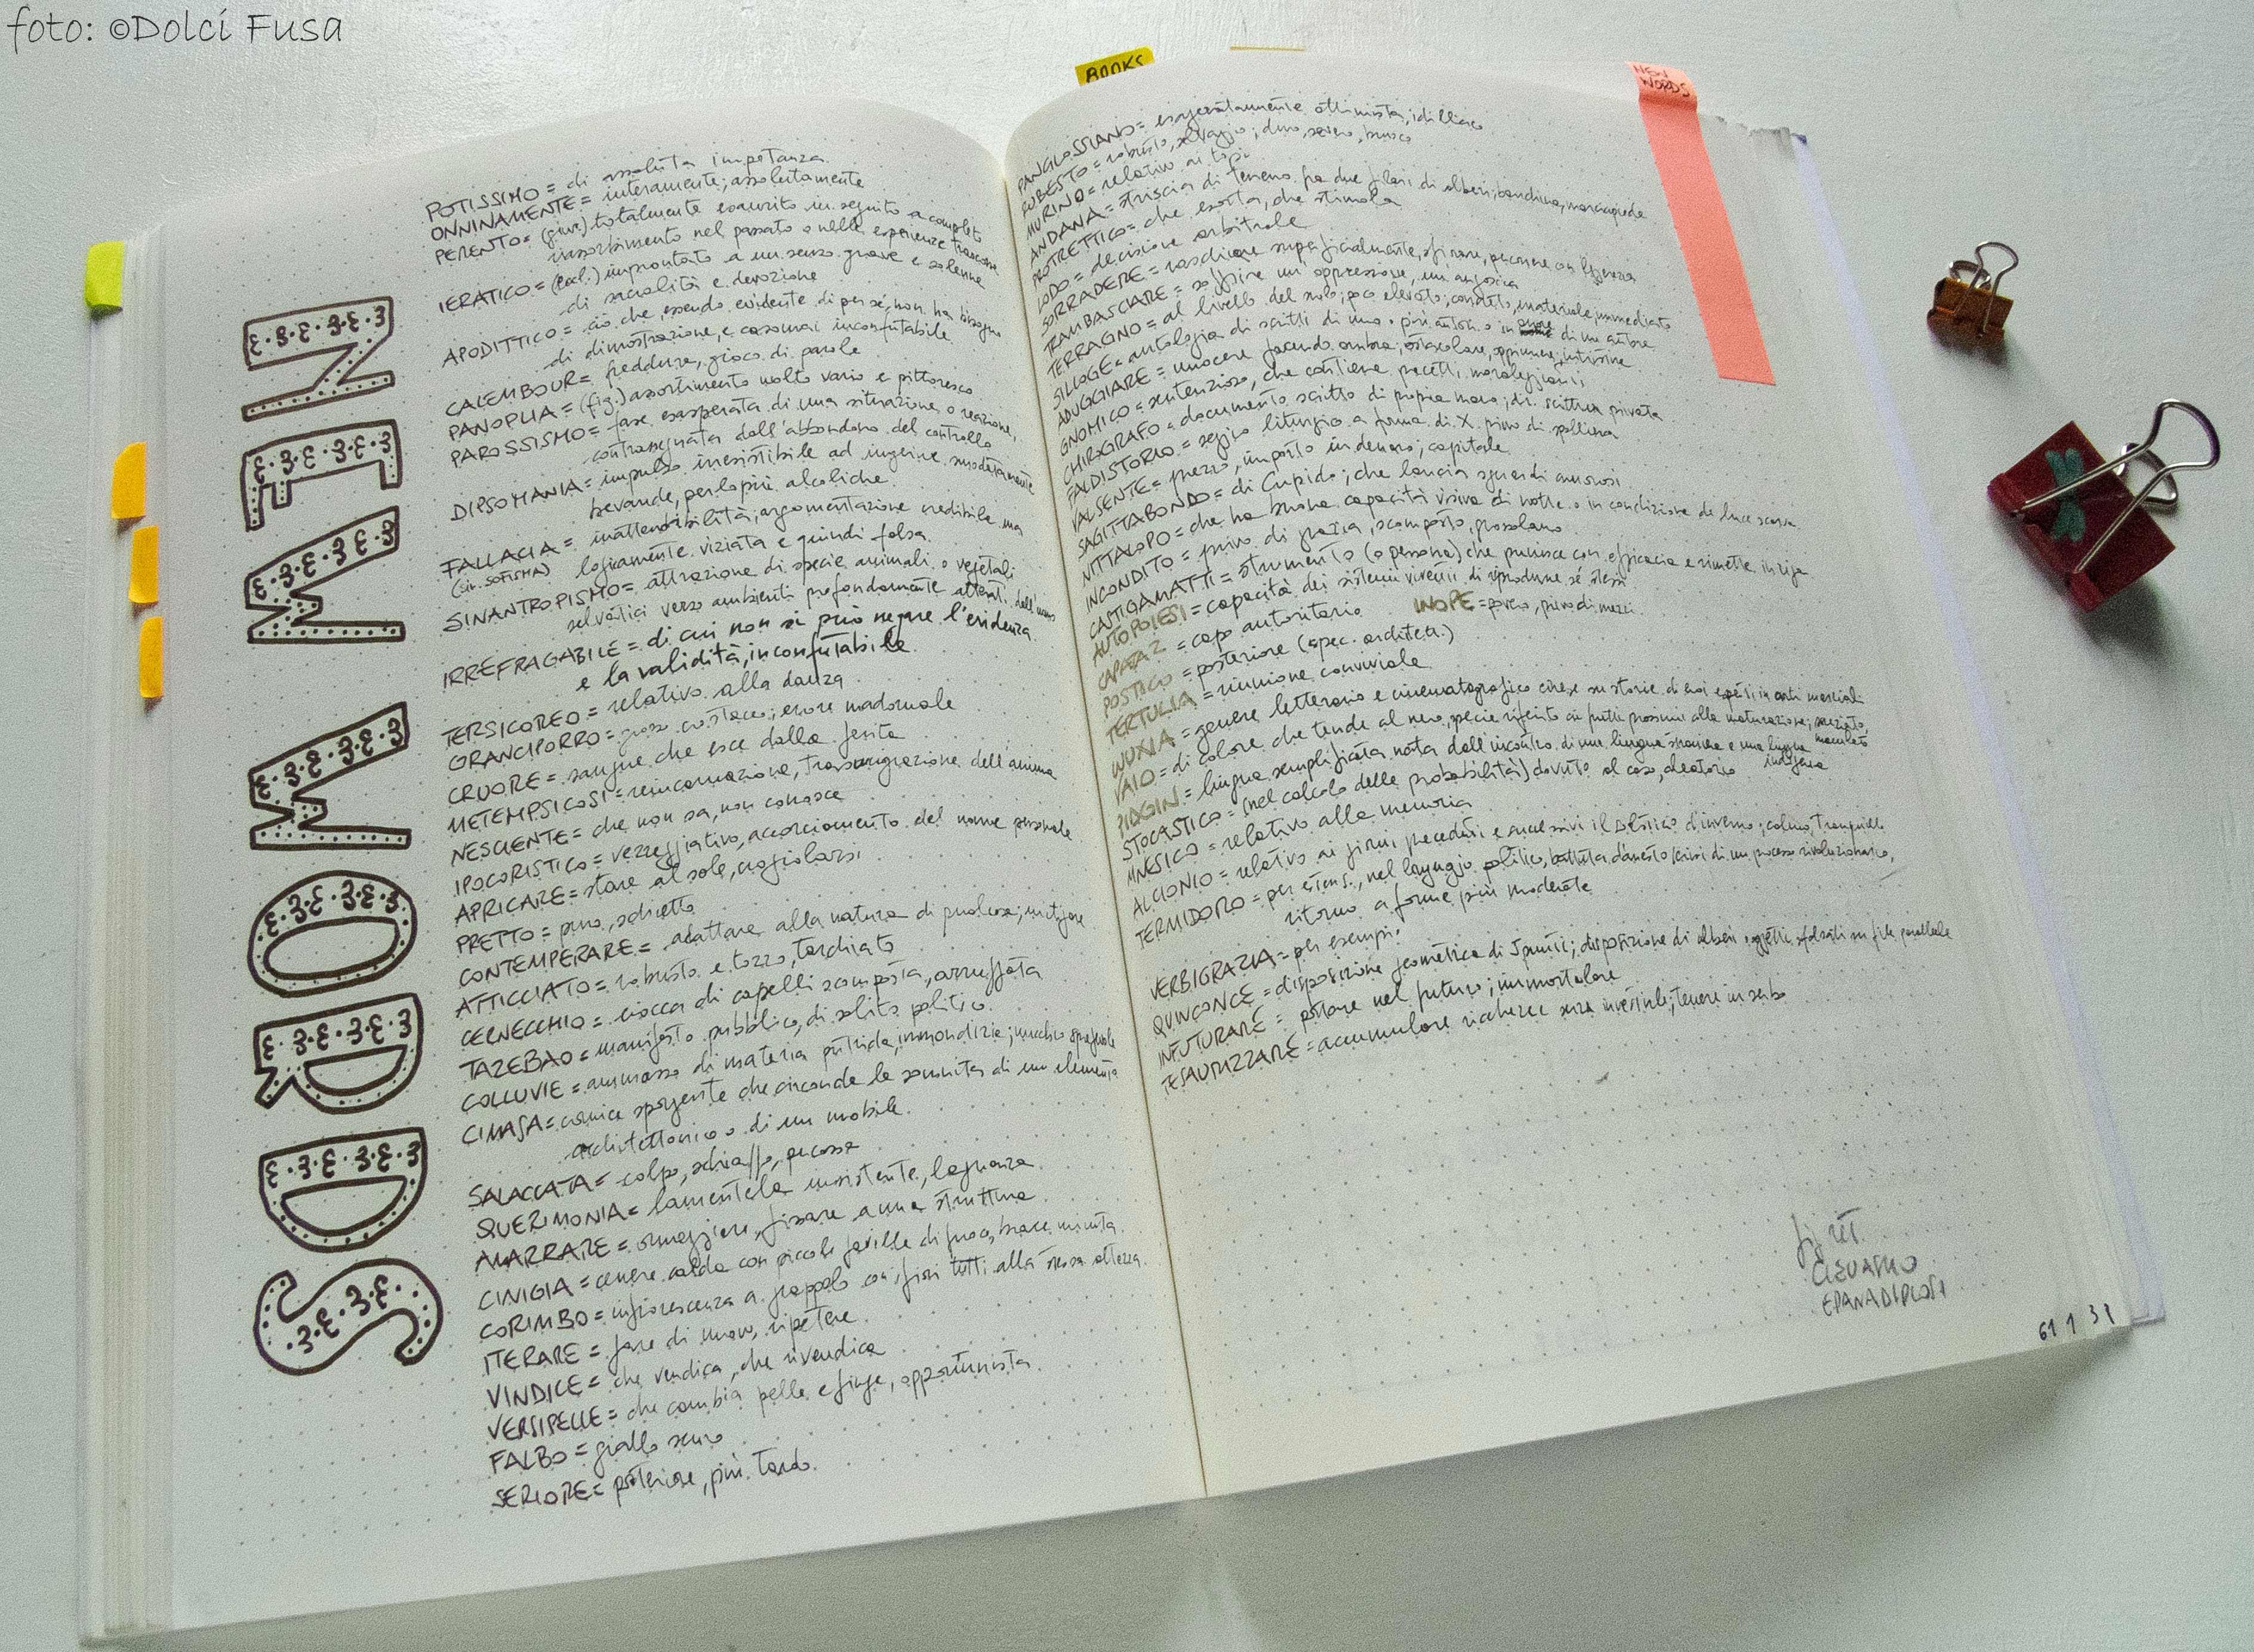 foto: ©Dolci Fusa
BOOKS
NEW
WORDS
NEW WORDS
POTISSIMO = di assoluta importanza
ONNINAMENTE = interamente; assolutamente
PERENTO = (giur.) totalmente esaurito in seguito a completo
assorbimento nel passato o nelle esperienze trascorse
IERATICO = (eccl.) improntato a un senso grave e solenne
di sacralità e devozione
APODITTICO = ciò che, essendo evidente di per sé, non ha bisogno
di dimostrazione, e casomai inconfutabile
CALEMBOUR = freddura, gioco di parole
PANOPLIA = (fig.) assortimento molto vario e pittoresco
PAROSSISMO = fase esasperata di una situazione o reazione,
contrassegnata dall'abbandono del controllo
DIPSOMANIA = impulso irresistibile ad ingerire smodatamente
bevande, perlopiù alcoliche
FALLACIA = inattendibilità, argomentazione credibile ma
(sin. SOFISMA) logicamente viziata e quindi falsa.
SINANTROPISMO = attrazione di specie animali o vegetali
selvatici verso ambienti profondamente alterati dall'uomo
IRREFRAGABILE = di cui non si può negare l'evidenza
e la validità, inconfutabile
TERSICOREO = relativo alla danza
GRANCIPORRO = grosso crostaceo; errore madornale
CRUORE = sangue che esce dalla ferita
METEMPSICOSI = reincarnazione, trasmigrazione dell'anima
NESCIENTE = che non sa, non conosce
IPOCORISTICO = vezzeggiativo, accorciamento del nome personale
APRICARE = stare al sole, crogiolarsi
PRETTO = puro, schietto
CONTEMPERARE = adattare alla natura di qualcosa; mitigare
ATTICCIATO = robusto e tozzo, tarchiato
CERNECCHIO = ciocca di capelli scomposta, arruffata
TAZEBAO = manifesto pubblico, di solito politico.
COLLUVIE = ammasso di materia putrida, immondizia; mucchio spregevole
CIMASA = cornice sporgente che circonda la sommità di un elemento
architettonico o di un mobile.
SALACCATA = colpo, schiaffo, percossa
QUERIMONIA = lamentela insistente, lagnanza
AMARRARE = ormeggiare, fissare a una struttura
CINIGIA = cenere calda con piccole faville di fuoco, brace minuta
CORIMBO = infiorescenza a grappolo con fiori tutti alla stessa altezza
ITERARE = fare di nuovo, ripetere
VINDICE = che vendica, che rivendica
VERSIPELLE = che cambia pelle e finge, opportunista
FALBO = giallo scuro
SERIORE = posteriore, più tardo.
PANGLOSSIANO = esageratamente ottimista, idilliaco
ROBESTO = robusto, selvaggio; duro, severo, brusco
MURINO = relativo ai topi
ANDANA = striscia di terreno fra due filari di alberi; banchina, marciapiede
PROTRETTICO = che esorta, che stimola
LODO = decisione arbitrale
SORRADERE = raschiare superficialmente, sfiorare, percorrere con leggerezza
TRAMBASCIARE = soffrire un'oppressione, un'angoscia
TERRAGNO = al livello del suolo; poco elevato; concreto, materiale, immediato
SILLOGE = antologia di scritti di uno o più autori o in di un autore
ADUGGIARE = nuocere facendo ombra; ostacolare, opprimere, intristire
GNOMICO = sentenzioso, che contiene precetti moraleggianti
CHIROGRAFO = documento scritto di propria mano; dir. scrittura privata
FALDISTORIO = seggio liturgico a forma di X privo di spalliera
VALSENTE = prezzo, importo in denaro; capitale
SAGITTABONDO = di Cupido; che lancia sguardi amorosi
NITTALOPO = che ha buona capacità visiva di notte o in condizione di luce scarsa
INCONDITO = privo di grazia, scomposto, grossolano
CASTIGAMATTI = strumento (o persona) che punisce con efficacia e rimette in riga
AUTOPOIESI = capacità dei sistemi viventi di riprodurre sé stessi
CAPATAZ = capo autoritario INOPE = povero, privo di mezzi
POSTICO = posteriore (spec. architett.)
TERTULIA = riunione conviviale
WUXIA = genere letterario e cinematografico cinese su storie di eroi esperti in arti marziali
VAIO = di colore che tende al nero, specie riferito ai frutti prossimi alla maturazione; screziato, maculato
PIDGIN = lingua semplificata nata dall'incontro di una lingua straniera e una lingua indigena
STOCASTICO = (nel calcolo delle probabilità) dovuto al caso, aleatorio
MNESICO = relativo alla memoria
ALCIONIO = relativo ai giorni precedenti e successivi il solstizio d'inverno; calmo, tranquillo
TERMIDORO = per estens., nel linguaggio politico, battuta d'arresto (crisi di un processo rivoluzionario,
ritorno a forme più moderate
VERBIGRAZIA = per esempio
QUINCONCE = disposizione geometrica di 5 punti; disposizione di alberi o oggetti sfalsati su file parallele
INFUTURARE = portare nel futuro; immortalare
TESAURIZZARE = accumulare ricchezze senza investirle; tenere in serbo
fig. ret.
CLEUASMO
EPANADIPLOSI
61 1 31